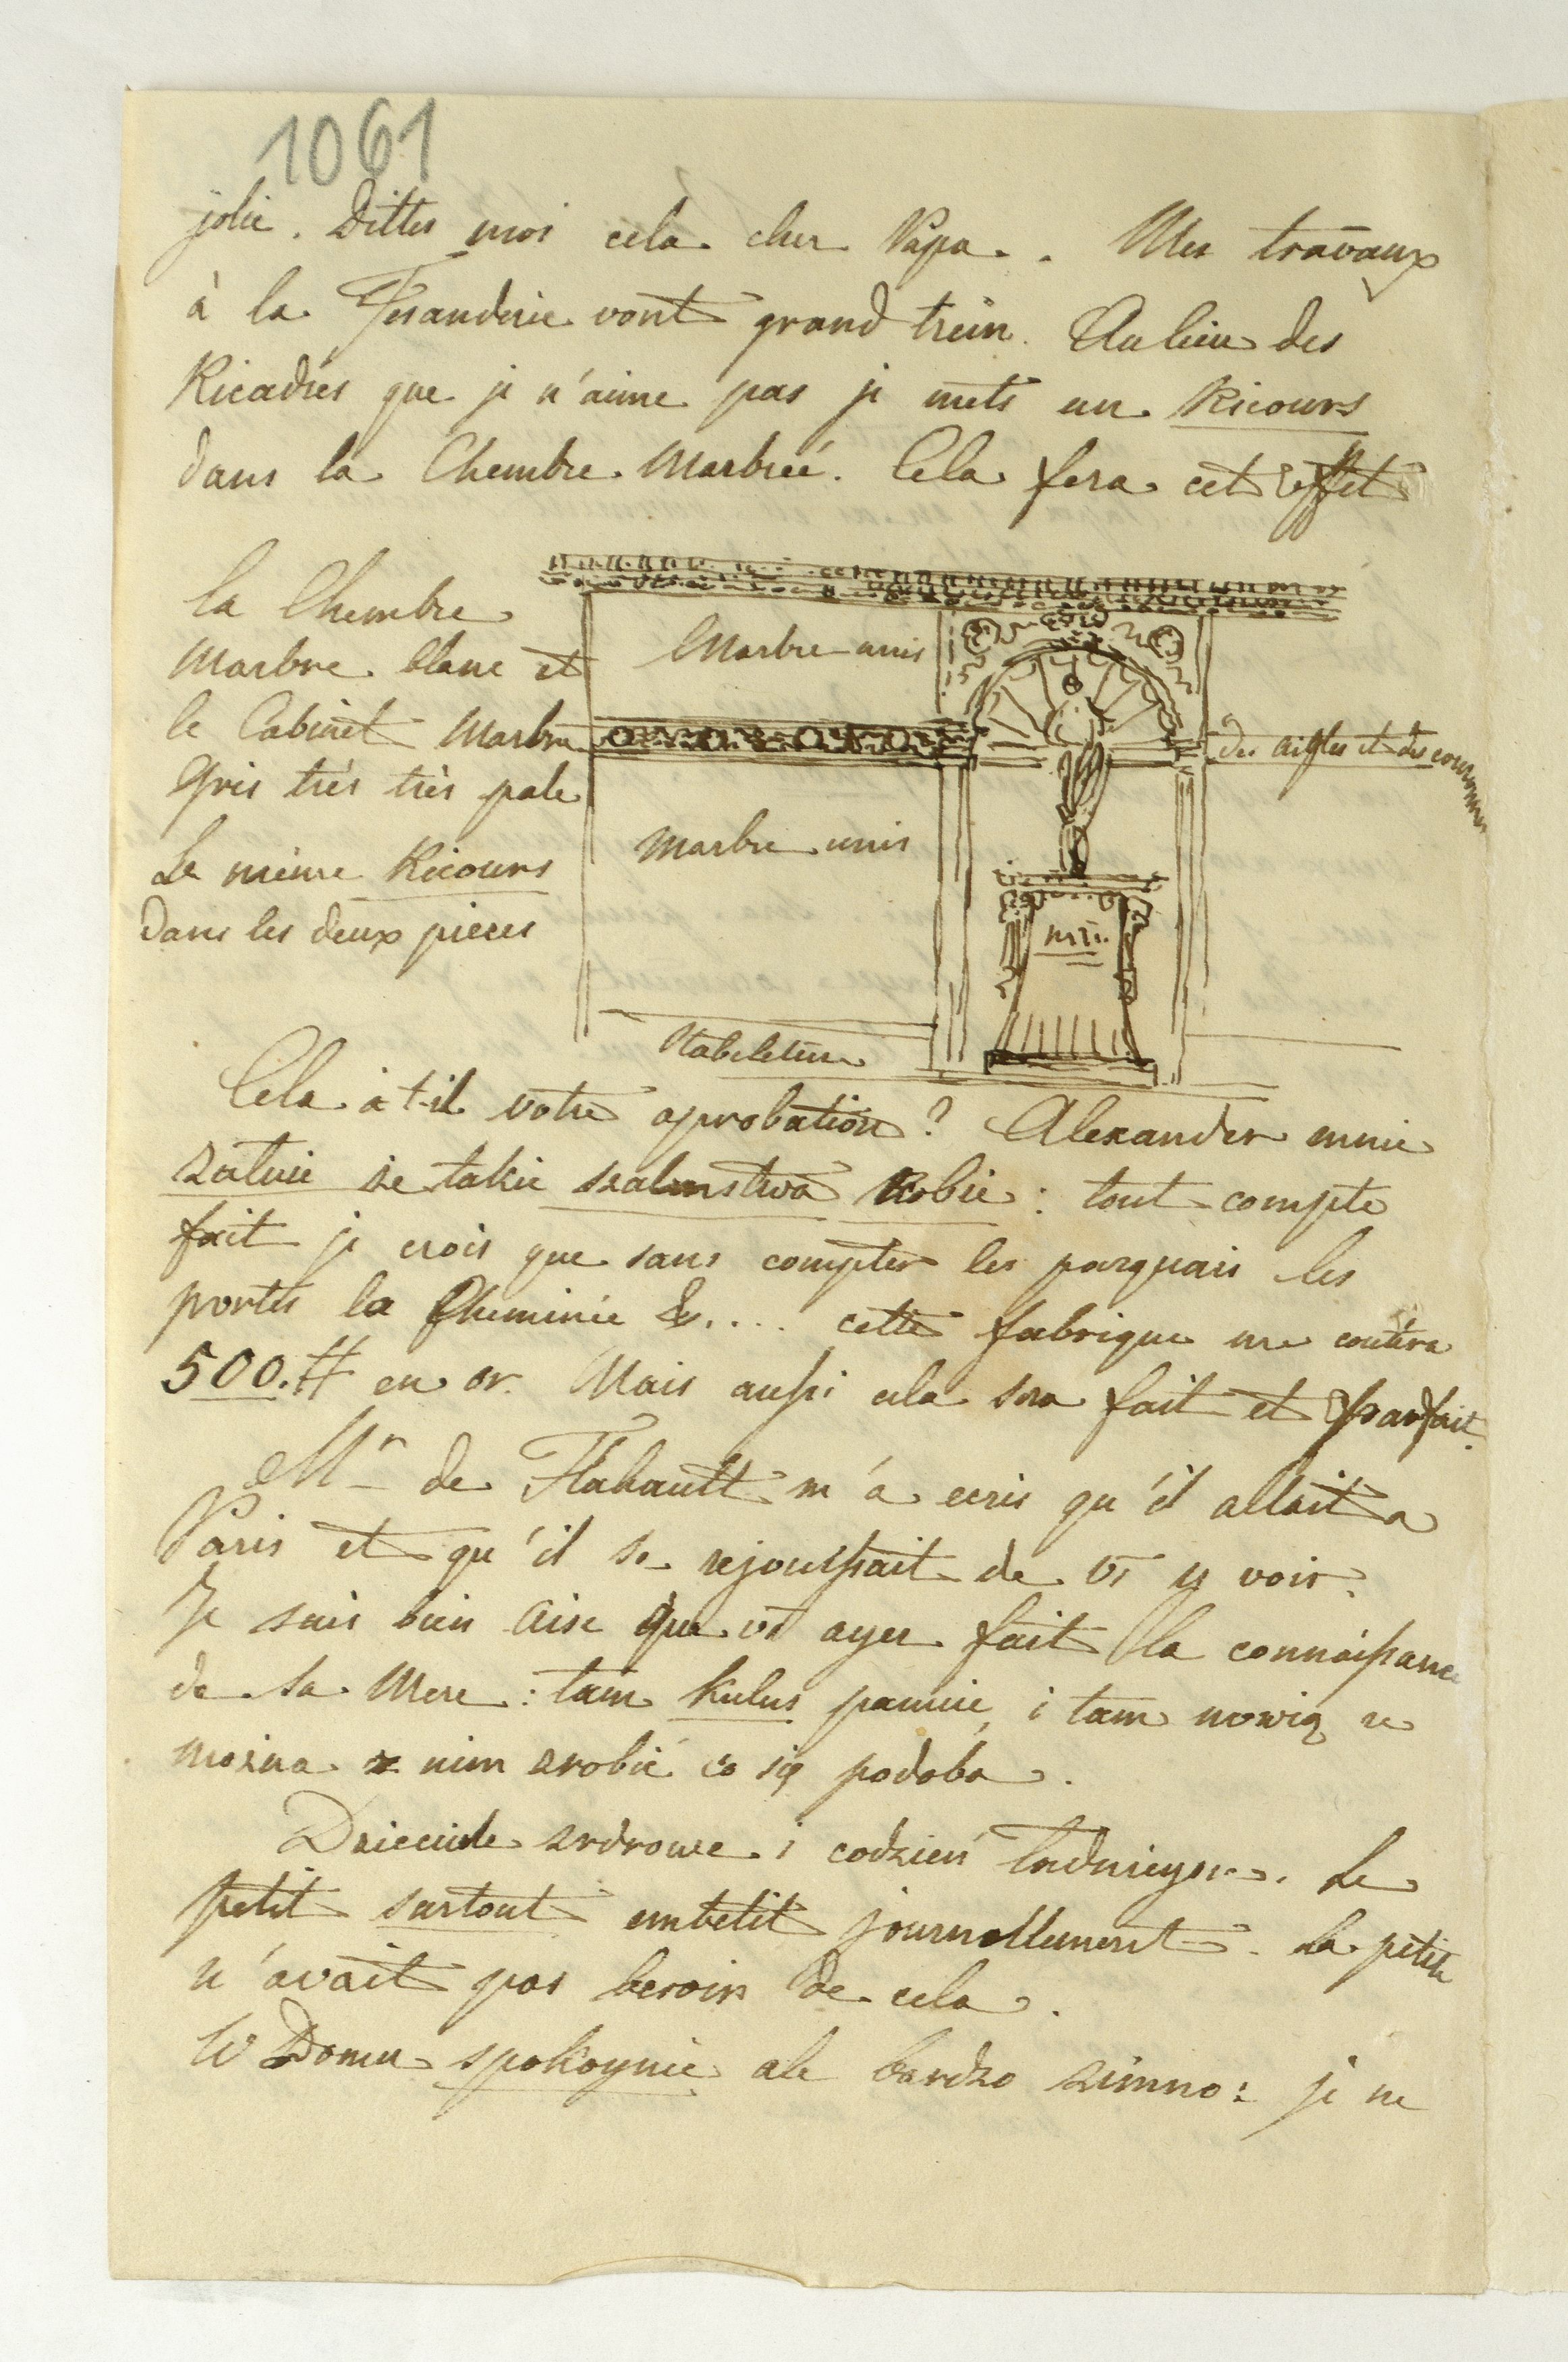 1061
jolie. Dittes moi cela cher Papa. Mes travaux
à la Fesanderie vont grand trein. Au lieu des
Ricadrés que je n'aime pas je mets un Ricours
dans la Chembre Marbreé. Cela fera cet effet
la Chembre
Marbre blanc et
le Cabinet Marbre
Gris très très pale
Le meme Ricours
Dans les deux pieces
Marbre unis
des aigles et des couronnes
Marbre unis
Cela à t-il votre aprobation? Alexander mnie
zaluie ze takie szalenstwa Robie: tout compte
fait je crois que sans compter les parquais les
portes la Cheminée &.... cette fabrique me coutera
500.# en or. Mais aussi cela sera fait et parfait.
Mr de Flahautt m'a ecris qu'il allait a
Paris et qu'il se rejouissait de vs y voir.
Je suis bien aise que vs ayes fait la connoissance
de sa Mere: tam kulus pannie i tam mowią ze
mozna z nim zrobić co się podoba.
Dzieciule zrdrowe i codzień ładnieysze. Le
petit surtout embelit journellement. La petite
n'avait pas besoin de cela.
W Domu spokoynie ale bardzo zimno: je ne